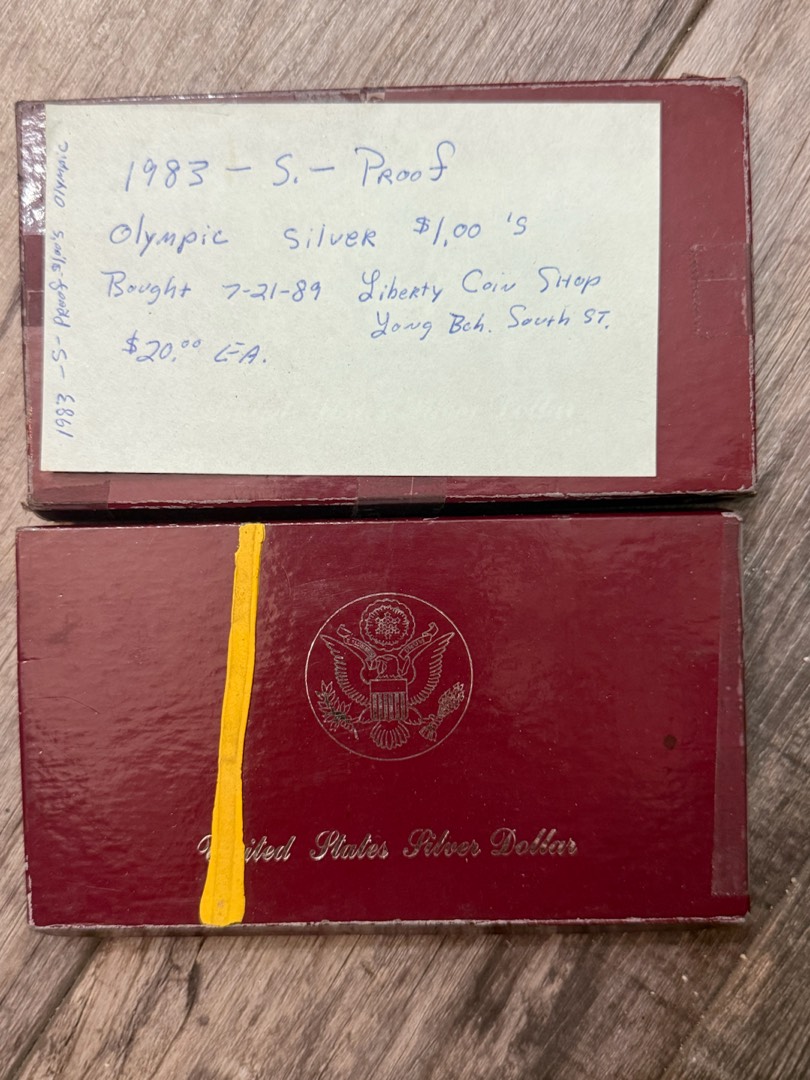 1983 - S. - Proof
Olympic Silver $1.00 's
Bought 7-21-89 Liberty Coin Shop
Long Bch. South ST.
$20.00 EA.
1983 - S - Proof $1.00's Olympic
United States Silver Dollar